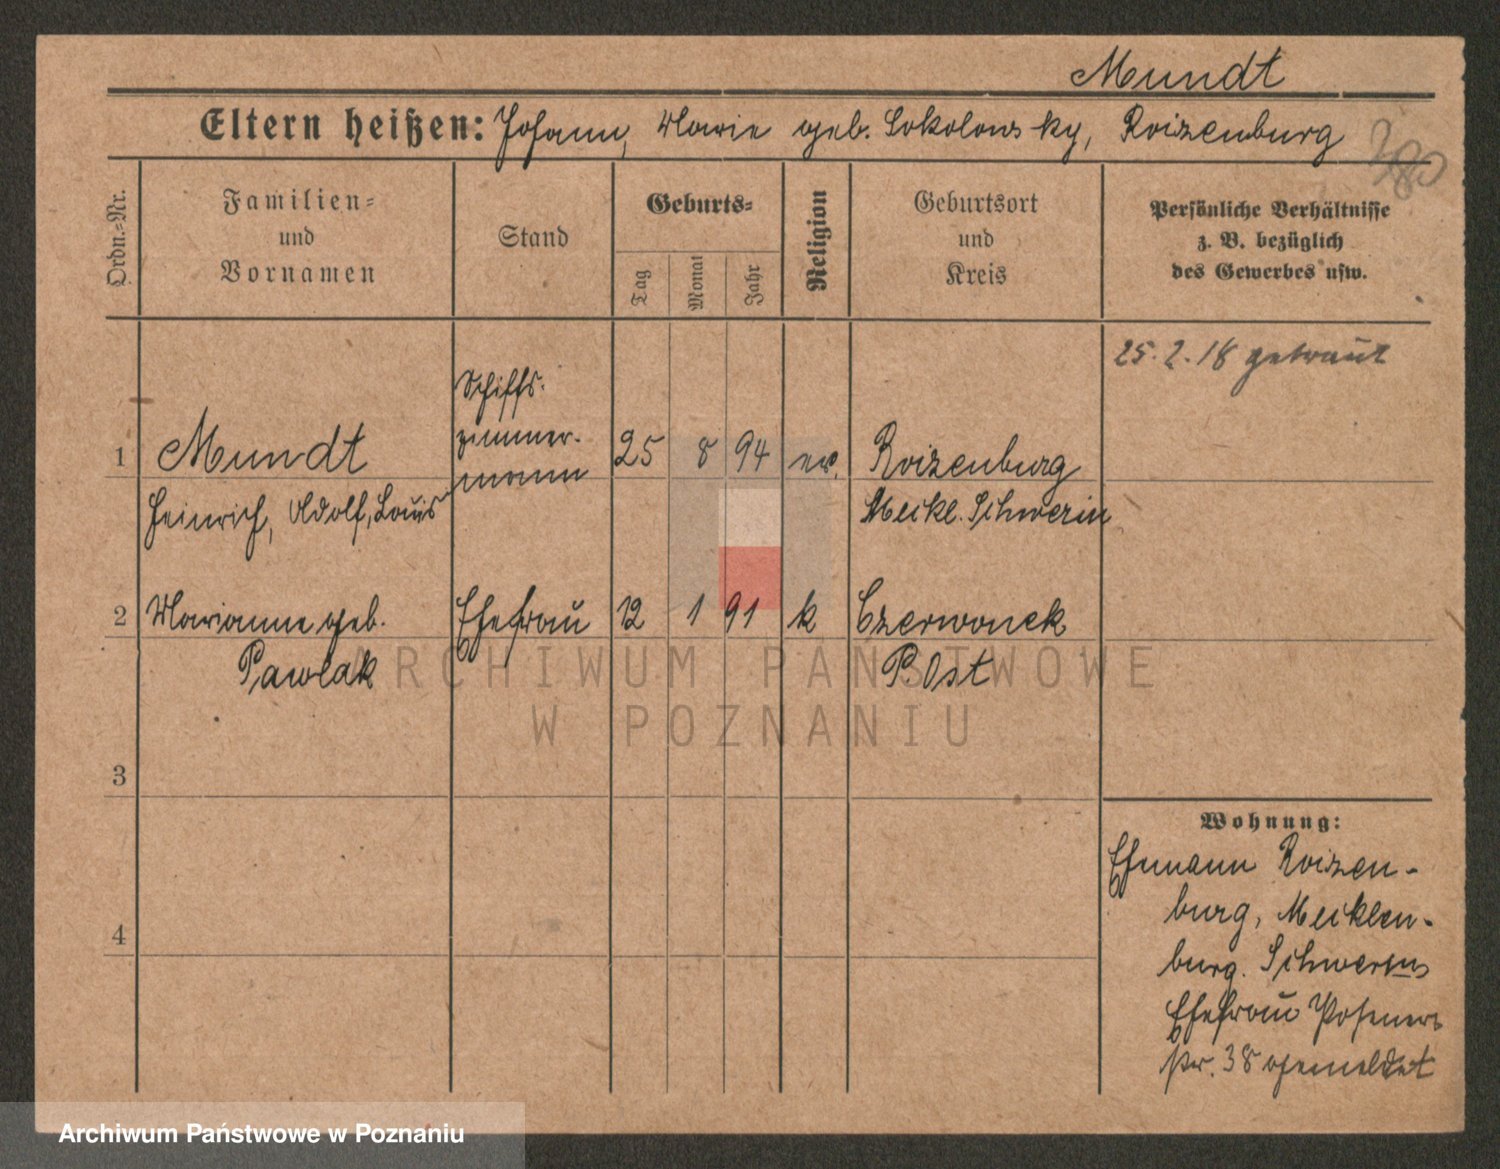 Mundt
Eltern heißen: Johann, Marie geb. Sokolowsky, Roizenburg
Ordn.-Nr.
Familien-
und
Vornamen
Stand
Geburts-
Tag
Monat
Jahr
Religion
Geburtsort
und
Kreis
Persönliche Verhältnisse
z. B. bezüglich
des Gewerbes usw.
25. 2. 18 getraut
Schiffs-
zimmer-
mann
1 Mundt 25 8 94 ev. Roizenburg
Heinrich, Adolf, Louis Meckl. Schwerin
2 Marianne geb. Ehefrau 12 1 91 k Czerwonek
Pawlak P. Ost
3
4
Wohnung:
Ehemann Roizen-
burg, Mecklen-
burg. Schwerin
Ehefrau Posener
str. 38 gemeldet
ARCHIWUM PAŃSTWOWE
W POZNANIU
Archiwum Państwowe w Poznaniu